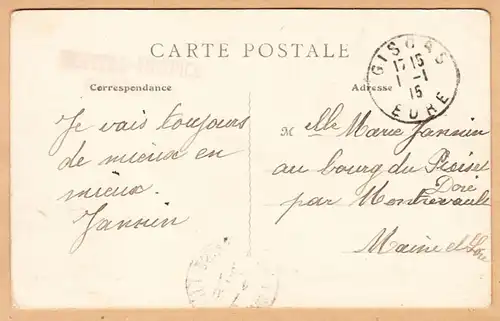 CARTE POSTALE
Correspondance
Adresse
GISORS
17 15
1 -1
15
EURE
Je vais toujours
de mieux en
mieux.
Jansein
Melle Marie Jansein
au bourg du
Doré
par Montrevault
Maine et Loire